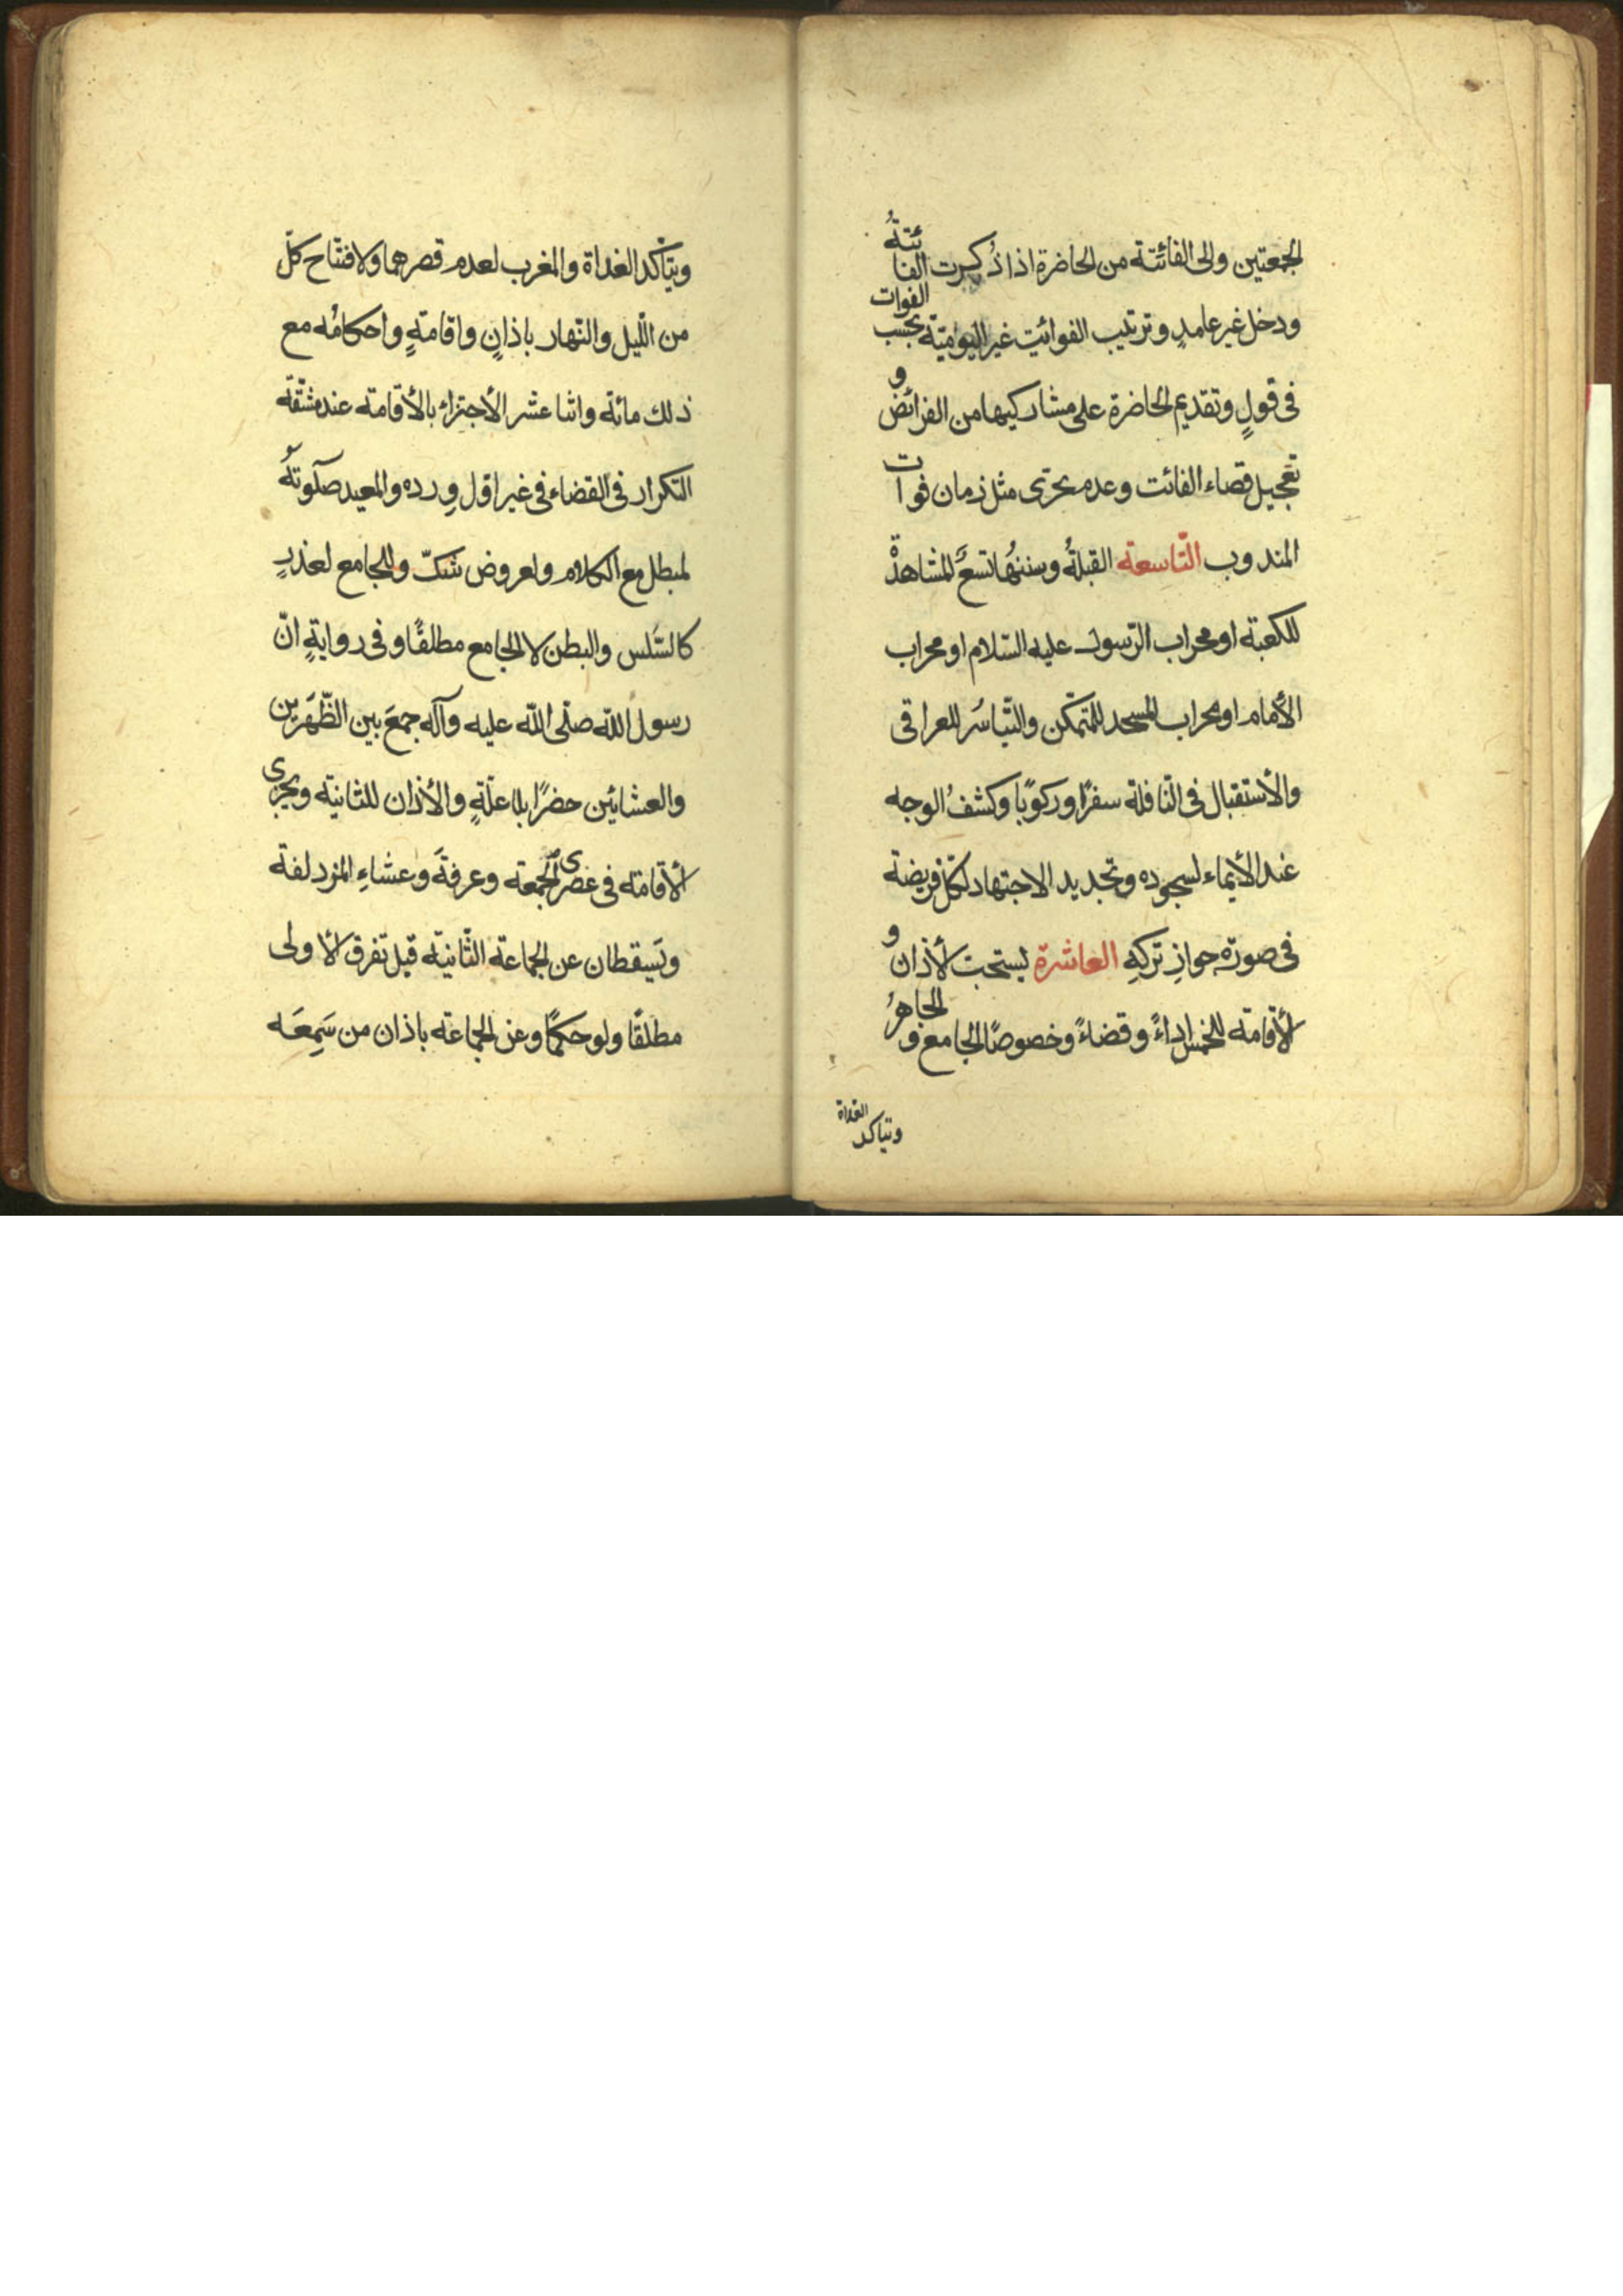 الجمعتين والى الفائتة من الحاضرة اذا ذُكرت الفائتةُ
ودخل غير عامدٍ وترتيب الفوائت غير اليوميّة بحسب الفوات
فى قولٍ وتقديم الحاضرة على مشاركيها من الفرائض و
تعجيل قضاء الفائت وعدم تحرّى مثل زمان فوات
المندوب التّاسعة القبلةُ وسننُها تسعٌ المشاهدةُ
للكعبة او محراب الرّسول عليه السّلام او محراب
الأمام او محراب المسجد للمتمكّن والتّياسُر للعراقى
والأستقبال فى النّافلة سفرًا وركوبًا وكشفُ الوجه
عند الأيماء لسجوده وتجديد الاجتهاد لكلّ فريضة
فى صورة جوازِ تركِهِ العاشرة يستحبّ الأذان و
الأقامة للخمس اداءً وقضاءً وخصوصًا الجامع و الجاهرُ
وتتاكد الغداة
ويتأكّد الغداة والمغرب لعدم قصرهما ولافتتاح كلّ
من اللّيل والنّهار باذانٍ واقامةٍ واحكامُه مع
ذلك مائة واثنا عشر الأجتزاء بالأقامة عند مشقّة
التكرار فى القضاء فى غير اوّل وِرده والمعيد صلوتهُ
لمبطل مع الكلام ولعروض شكّ وللجامع لعذرٍ
كالسَّلس والبطن لا الجامع مطلقًا وفى روايةٍ انّ
رسول الله صلّى اللّه عليه وآله جمعَ بين الظّهَرين
والعشائين حضرًا بلا علّةٍ والأذان للثانية ويجزى
الأقامة فى عصرى الجمعة وعرفةَ وعشاءِ المزدلفة
ويَسقطان عن الجماعة الثّانية قبل تفرق الأولى
مطلقًا ولو حكمًا وعن الجماعة باذان من سَمِعَه